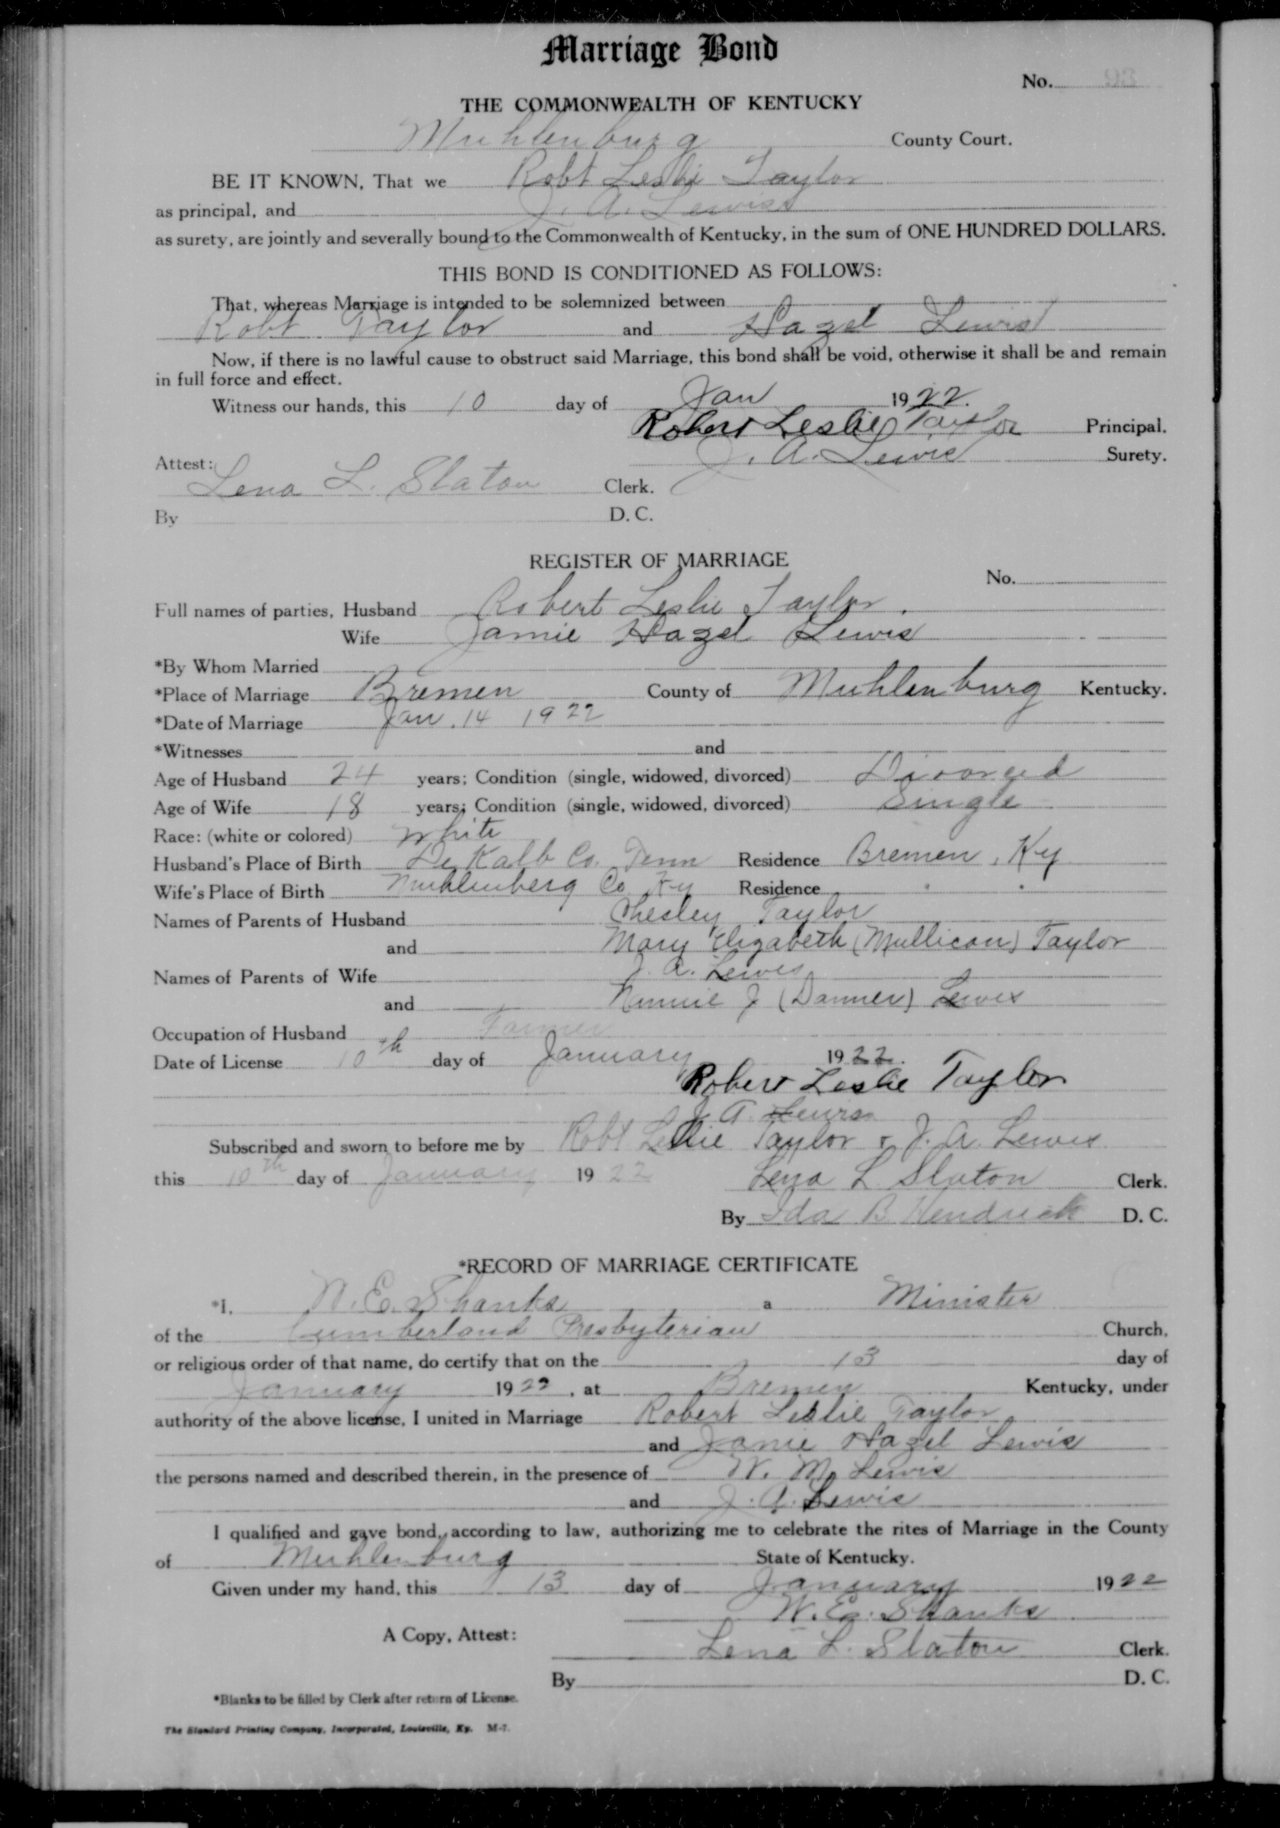 Marriage Bond
No.
THE COMMONWEALTH OF KENTUCKY
Muhlenburg County Court.
BE IT KNOWN, That we Robt Leslie Taylor
as principal, and J. A. Lewis
as surety, are jointly and severally bound to the Commonwealth of Kentucky, in the sum of ONE HUNDRED DOLLARS.
THIS BOND IS CONDITIONED AS FOLLOWS:
That, whereas Marriage is intended to be solemnized between
Robt Taylor and Hazel Lewis
Now, if there is no lawful cause to obstruct said Marriage, this bond shall be void, otherwise it shall be and remain
in full force and effect.
Witness our hands, this 10 day of Jan 1922.
Robert Leslie Taylor Principal.
J. A. Lewis Surety.
Attest:
Lena L. Slaton Clerk.
By D. C.
REGISTER OF MARRIAGE
No.
Full names of parties, Husband Robert Leslie Taylor.
Wife Jamie Hazel Lewis
*By Whom Married
*Place of Marriage Bremen County of Muhlenburg Kentucky.
*Date of Marriage Jan. 14 1922
*Witnesses and
Age of Husband 24 years; Condition (single, widowed, divorced) Divorced
Age of Wife 18 years; Condition (single, widowed, divorced) Single
Race: (white or colored) White
Husband's Place of Birth De Kalb Co. Tenn Residence Bremen, Ky
Wife's Place of Birth Muhlenberg Co Ky Residence " "
Names of Parents of Husband Chesley Taylor
and Mary Elizabeth (Mullican) Taylor
Names of Parents of Wife J. A. Lewis
and Nimmie J (Danner) Lewis
Occupation of Husband Farmer
Date of License 10th day of January 1922.
Robert Leslie Taylor
J. A. Lewis
Subscribed and sworn to before me by Robt Leslie Taylor & J. A. Lewis
this 10th day of January 1922 Lena L Slaton Clerk.
By Ida B Hendrick D. C.
*RECORD OF MARRIAGE CERTIFICATE
*I, W. E. Shanks a Minister
of the Cumberland Presbyterian Church,
or religious order of that name, do certify that on the 13 day of
January 1922, at Bremen Kentucky, under
authority of the above license, I united in Marriage Robert Leslie Taylor
and Janie Hazel Lewis
the persons named and described therein, in the presence of W. M. Lewis
and J. A. Lewis
I qualified and gave bond, according to law, authorizing me to celebrate the rites of Marriage in the County
of Muhlenburg State of Kentucky.
Given under my hand, this 13 day of January 1922
W. E. Shanks
A Copy, Attest:
Lena L. Slaton Clerk.
By D. C.
*Blanks to be filled by Clerk after return of License.
The Standard Printing Company, Incorporated, Louisville, Ky. M-7.